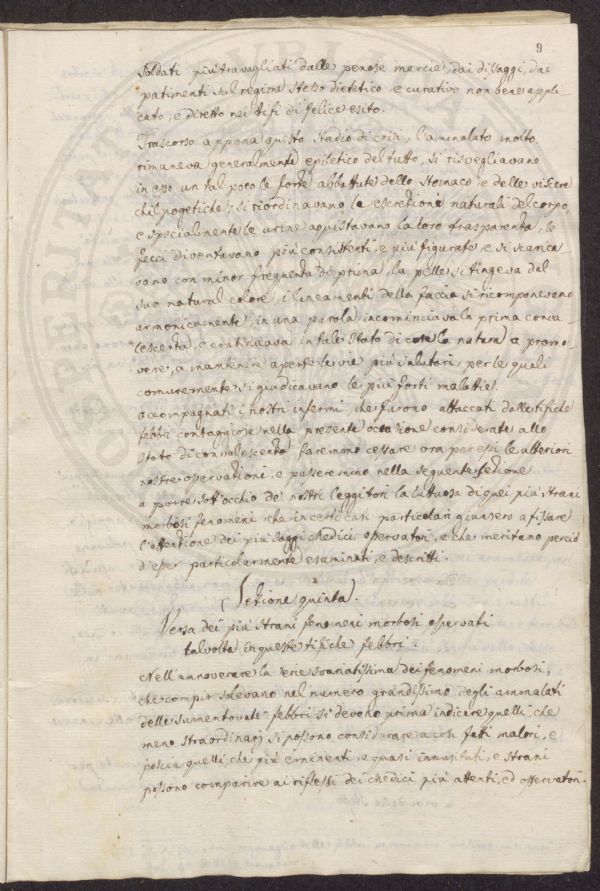 9
Soldati più travagliati dalle penose marcie, dai disaggi, dai
patimenti sul regime stesso dietetico e curativo non bene appli-
cato, e diretto nei tifi di felice esito.
Trascorso appena questo stadio di crisi, l'ammalato molto
rimaneva generalmente epiletico del tutto, si risvegliavano
in esso un tal poco le forze abbattute dello Stomaco e delle viscere
chilopogetiche; si riordinavano le escrezioni naturali del corpo,
e specialmente le urine aquistavano la loro trasparenza, le
fecci diventavano più consistenti, e più figurate, e si scarica-
vano con minor frequenza di prima, la pelle si tingeva del
suo natural colore, i lineamenti della faccia si ricomponevano
armonicamente, in una parola incominciava la prima conva-
lescenza, e continuava in tale stato di cose la natura a promo-
vere, a mantenere aperte le vie più salutari, per le quali
comunemente si giudicavano le più forti malattie.
accompagnati i nostri infermi, che furono attaccati dalle tifiche
febbri contaggiose nella presente occasione considerate allo
stato di convalescenza, faremmo cessare ora per essi le ulteriori
nostre osservazioni, e passeremmo nella seguente sezione
a porre sott'occhio de' nostri leggitori la luttuosa di quei più strani
morbosi fenomeni che in certi casi particolari giunsero a fissare
l'attenzione dei più saggi Medici osservatori, e che meritano perciò
d'esser particolarmente esaminati, e descritti.
Sezione quinta.
Versa dei più strani fenomeni morbosi osservati
talvolta in queste tifiche febbri.
Nell'annoverare la serie svariatissima dei fenomeni morbosi,
che compir solevano nel numero grandissimo degli ammalati
delle sumentovate febbri si devono prima indicare quelli che
meno straordinarj si possono considerare a cotali malori, e
poscia quelli, che più eminenti, e quasi innusitati, e strani
possono comparire ai riflessi dei Medici più attenti, ed osservatori.